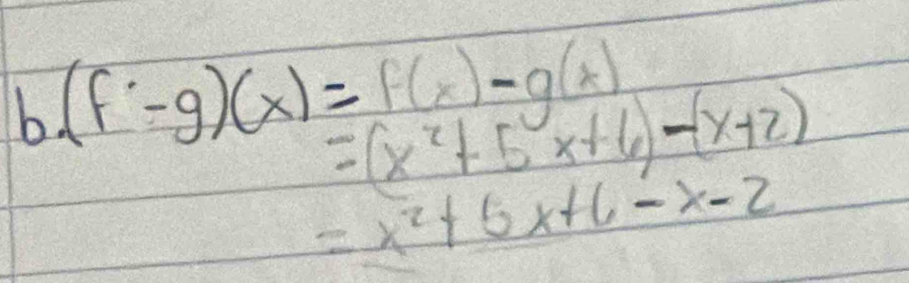 b. (f - g)(x) = f(x) - g(x)
= (x² + 5x + 6) - (x + 2)
= x² + 5x + 6 - x - 2